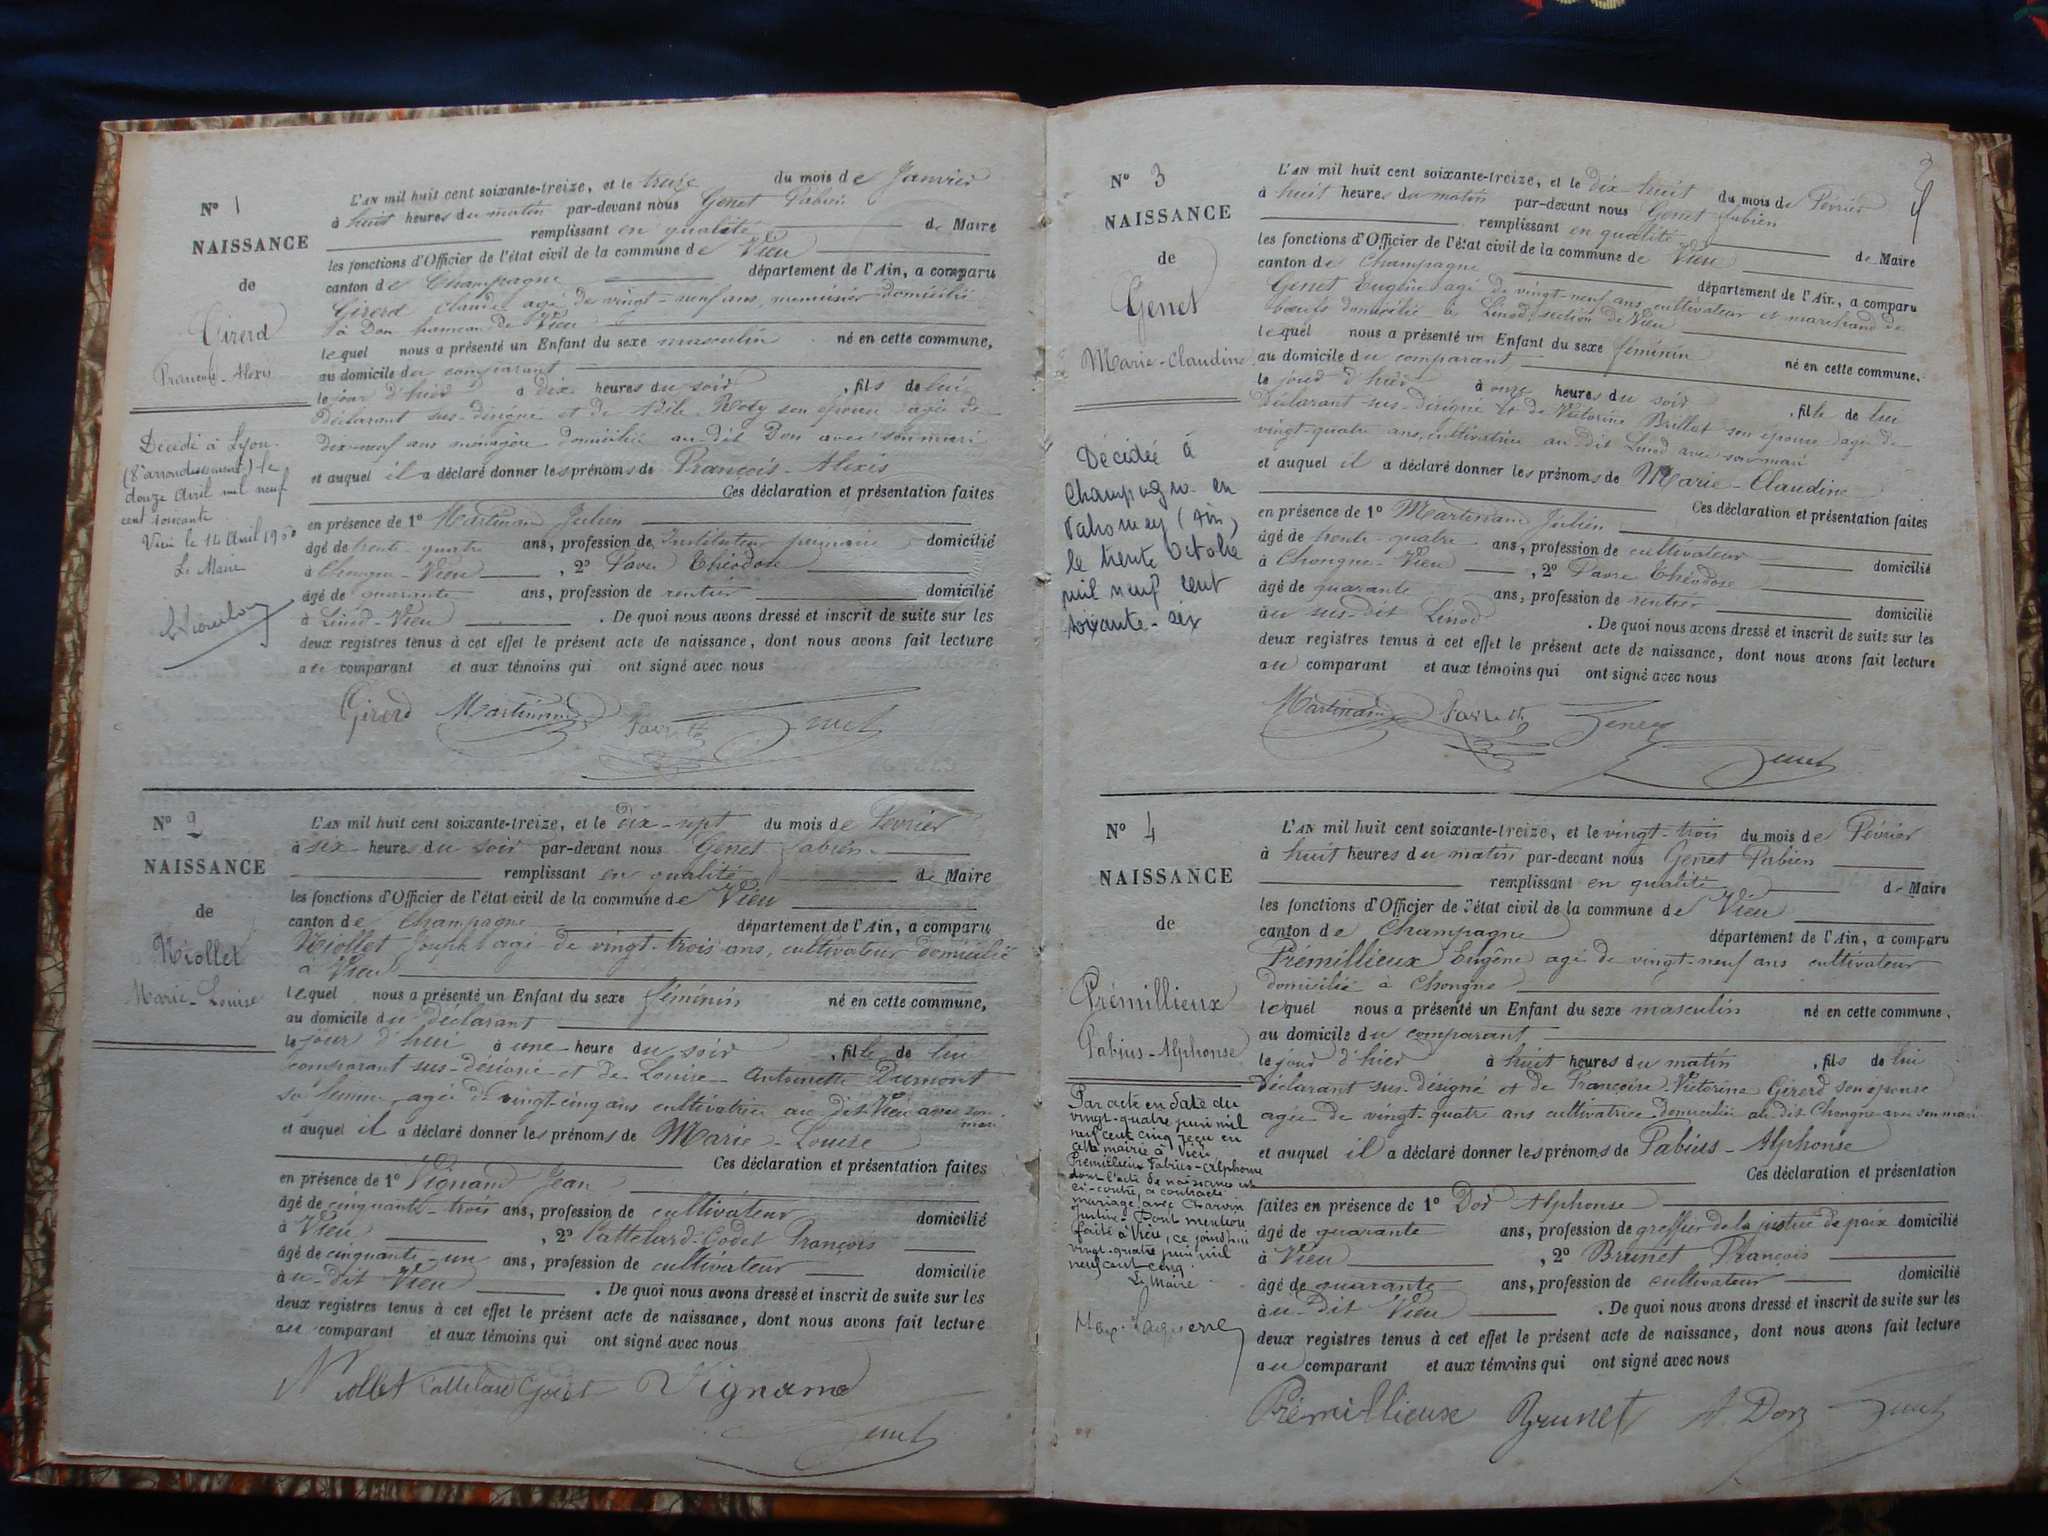 N° 1
NAISSANCE
de
Girerd
François-Alexis
Décédé à Lyon
(8e arrondissement) le
douze Avril mil neuf
cent soixante
Vieu le 14 Avril 1960
Le Maire
L'AN mil huit cent soixante-treize, et le treize du mois de Janvier
à huit heures du matin par-devant nous Genet Fabien
remplissant en qualité de Maire
les fonctions d'Officier de l'état civil de la commune de Vieu
canton de Champagne département de l'Ain, a comparu
Girerd Claude agé de vingt-neuf ans, menuisier domicilié
à Don hameau de Vieu
lequel nous a présenté un Enfant du sexe masculin né en cette commune,
au domicile du comparant
le jour d'hier à dix heures du soir, fils de lui
Déclarant sus-désigné et de son épouse agée de
dix-neuf ans ménagère domiciliée au-dit Don avec son mari
et auquel il a déclaré donner les prénoms de François-Alexis
Ces déclaration et présentation faites
en présence de 1° Martinand Julien
âgé de trente-quatre ans, profession de Instituteur primaire domicilié
à Chongne-Vieu, 2° Favre Théodore
âgé de quarante ans, profession de rentier domicilié
à Linod-Vieu. De quoi nous avons dressé et inscrit de suite sur les
deux registres tenus à cet effet le présent acte de naissance, dont nous avons fait lecture
au comparant et aux témoins qui ont signé avec nous
Girerd Martinand Genet
N° 2
NAISSANCE
de
Niollet
Marie-Louise
L'AN mil huit cent soixante-treize, et le dix-sept du mois de Février
à six heures du soir par-devant nous Genet Fabien
remplissant en qualité de Maire
les fonctions d'Officier de l'état civil de la commune de Vieu
canton de Champagne département de l'Ain, a comparu
Niollet Joseph agé de vingt-trois ans, cultivateur domicilié
à Vieu
lequel nous a présenté un Enfant du sexe féminin né en cette commune,
au domicile du déclarant
le jour d'hui à une heure du soir, fille de lui
comparant sus-désigné et de Louise Antoinette Dumont
sa femme agée de vingt-cinq ans cultivatrice au dit Vieu avec son
mari
et auquel il a déclaré donner les prénoms de Marie-Louise
Ces déclaration et présentation faites
en présence de 1° Vignand Jean
âgé de cinquante-trois ans, profession de cultivateur domicilié
à Vieu, 2° Cattelard-Godet François
âgé de cinquante-un ans, profession de cultivateur domicilié
au-dit Vieu. De quoi nous avons dressé et inscrit de suite sur les
deux registres tenus à cet effet le présent acte de naissance, dont nous avons fait lecture
au comparant et aux témoins qui ont signé avec nous
Niollet Cattelard Godet Vignand
Genet
N° 3
NAISSANCE
de
Genet
Marie-Claudine
Décédée à
Champagne en
Valromey (Ain)
le trente Octobre
mil neuf cent
soixante-six
L'AN mil huit cent soixante-treize, et le dix-huit du mois de Février
à huit heures du matin par-devant nous Genet Fabien
remplissant en qualité de Maire
les fonctions d'Officier de l'état civil de la commune de Vieu
canton de Champagne département de l'Ain, a comparu
Genet Eugène agé de vingt-neuf ans, cultivateur et marchand de
boeufs domicilié à Linod, section de Vieu
lequel nous a présenté un Enfant du sexe féminin né en cette commune,
au domicile du comparant
le jour d'hier à onze heures du soir, fille de lui
Déclarant sus-désigné et de Victorine Brillat son épouse agée de
vingt-quatre ans, cultivatrice au dit Linod avec son mari
et auquel il a déclaré donner les prénoms de Marie-Claudine
Ces déclaration et présentation faites
en présence de 1° Martinand Julien
âgé de trente-quatre ans, profession de cultivateur domicilié
à Chongne-Vieu, 2° Favre Théodore
âgé de quarante ans, profession de rentier domicilié
au sus-dit Linod. De quoi nous avons dressé et inscrit de suite sur les
deux registres tenus à cet effet le présent acte de naissance, dont nous avons fait lecture
au comparant et aux témoins qui ont signé avec nous
Martinand Genet
Genet
N° 4
NAISSANCE
de
Prémillieux
Fabius-Alphonse
Par acte en date du
vingt-quatre juin mil
neuf cent cinq reçu en
cette mairie à Vieu,
Prémillieux Fabius-Alphonse
dont l'acte de naissance est
ci-contre, a contracté
mariage avec Charvin
Justine. Dont mention
faite à Vieu, ce jourd'hui
vingt-quatre juin mil
neuf cent cinq.
Le Maire
L'AN mil huit cent soixante-treize, et le vingt-trois du mois de Février
à huit heures du matin par-devant nous Genet Fabien
remplissant en qualité de Maire
les fonctions d'Officier de l'état civil de la commune de Vieu
canton de Champagne département de l'Ain, a comparu
Prémillieux Eugène agé de vingt-neuf ans cultivateur
domicilié à Chongne
lequel nous a présenté un Enfant du sexe masculin né en cette commune,
au domicile du comparant
le jour d'hier à huit heures du matin, fils de lui
Déclarant sus-désigné et de Françoise Victorine Girerd son épouse
agée de vingt-quatre ans cultivatrice domiciliée au-dit Chongne avec son mari
et auquel il a déclaré donner les prénoms de Fabius-Alphonse
Ces déclaration et présentation
faites en présence de 1° Dor Alphonse
âgé de quarante ans, profession de greffier de la justice de paix domicilié
à Vieu, 2° Brunet François
âgé de quarante ans, profession de cultivateur domicilié
au-dit Vieu. De quoi nous avons dressé et inscrit de suite sur les
deux registres tenus à cet effet le présent acte de naissance, dont nous avons fait lecture
au comparant et aux témoins qui ont signé avec nous
Prémillieux Brunet A. Dor Genet